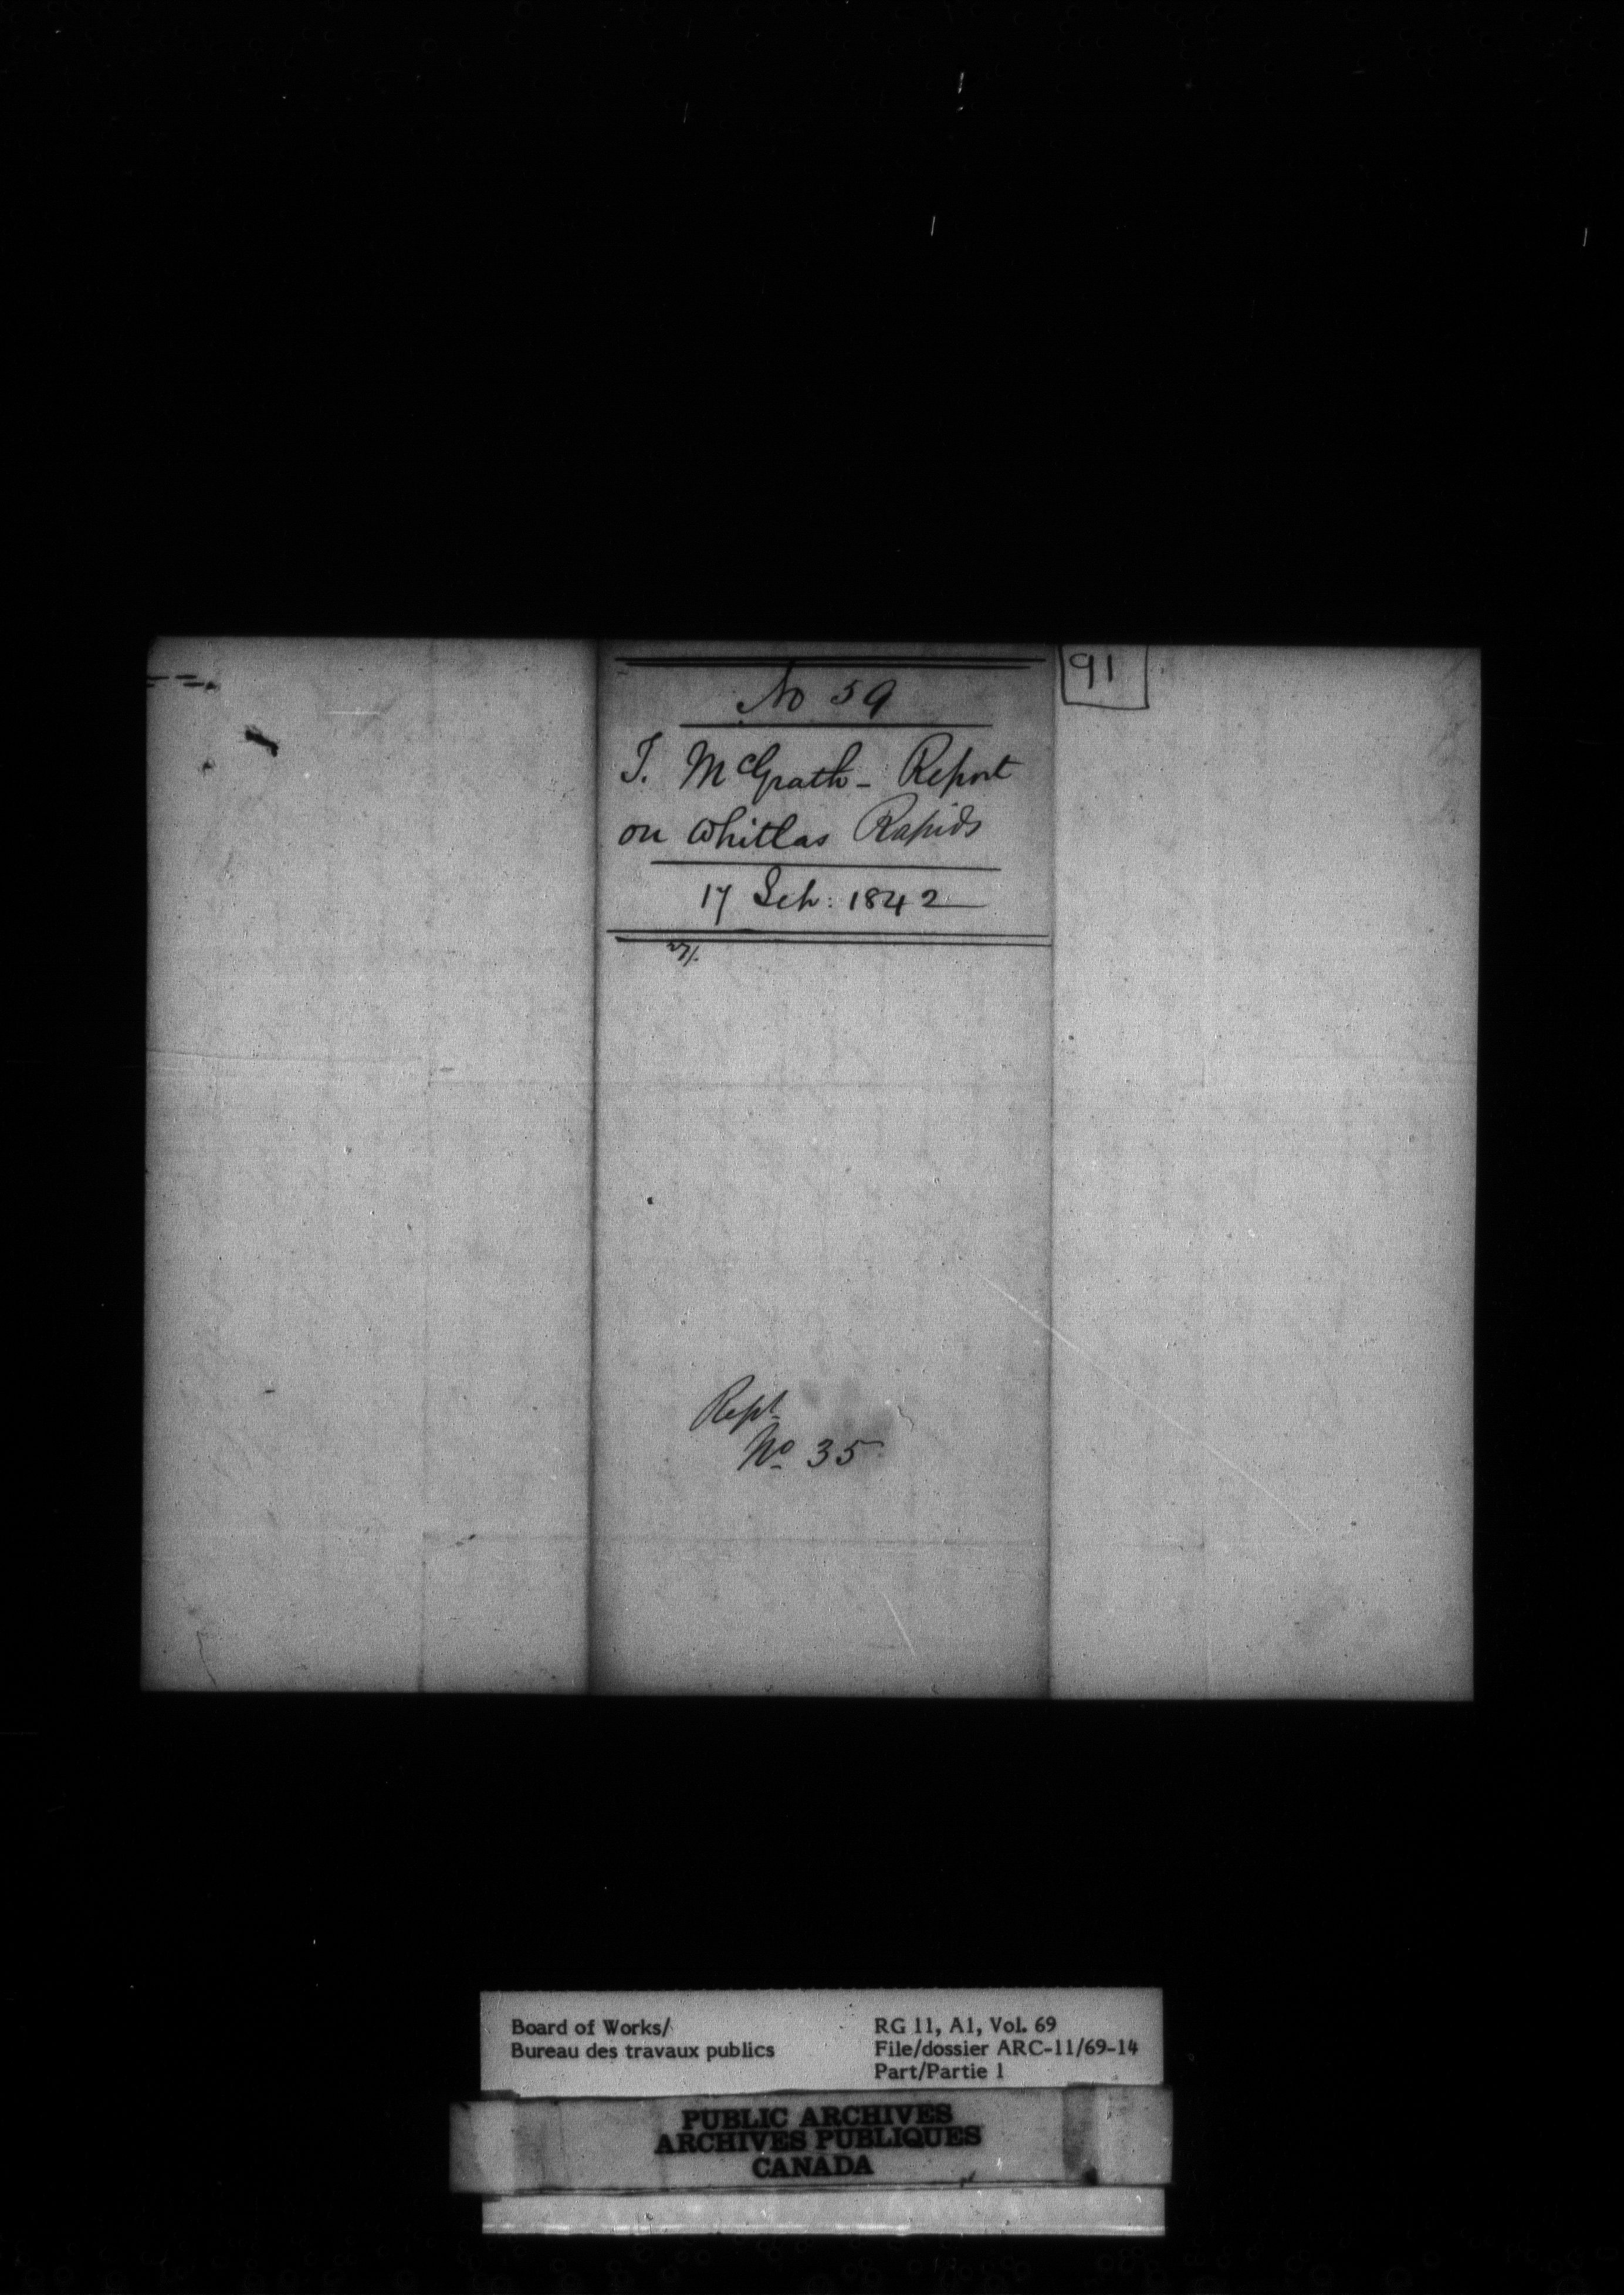 No 59
T. McGrath - Report
on Whitlas Rapids
17 Sep: 1842
27/.
91
Rept
No 35
Board of Works/
Bureau des travaux publics
RG 11, A1, Vol. 69
File/dossier ARC-11/69-14
Part/Partie 1
PUBLIC ARCHIVES
ARCHIVES PUBLIQUES
CANADA